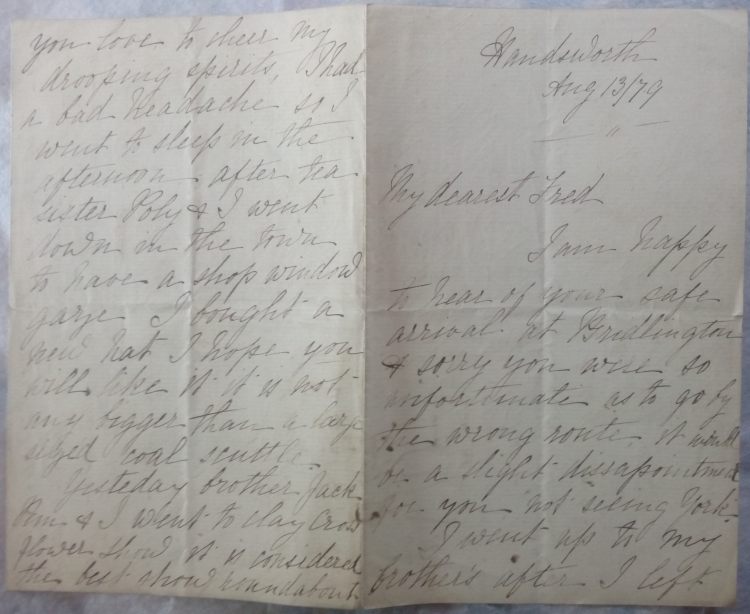 Handsworth
Aug 13/79
"
My dearest Fred
I am happy
to hear of your safe
arrival at Bridlington
& sorry you were so
unfortunate as to go by
the wrong route, it would
be a slight dissapointment
for you not seeing York
I went up to my
brother's after I left
you love to cheer my
drooping spirits, I had
a bad headache so I
went to sleep in the
afternoon after tea
sister Poly & I went
down in the town
to have a shop window
gaze I bought a
new hat I hope you
will like it it is not
any bigger than a large
sized coal scuttle
Yesteday brother Jack
& I went to Clay Cross
flower show it is considered
the best show roundabout